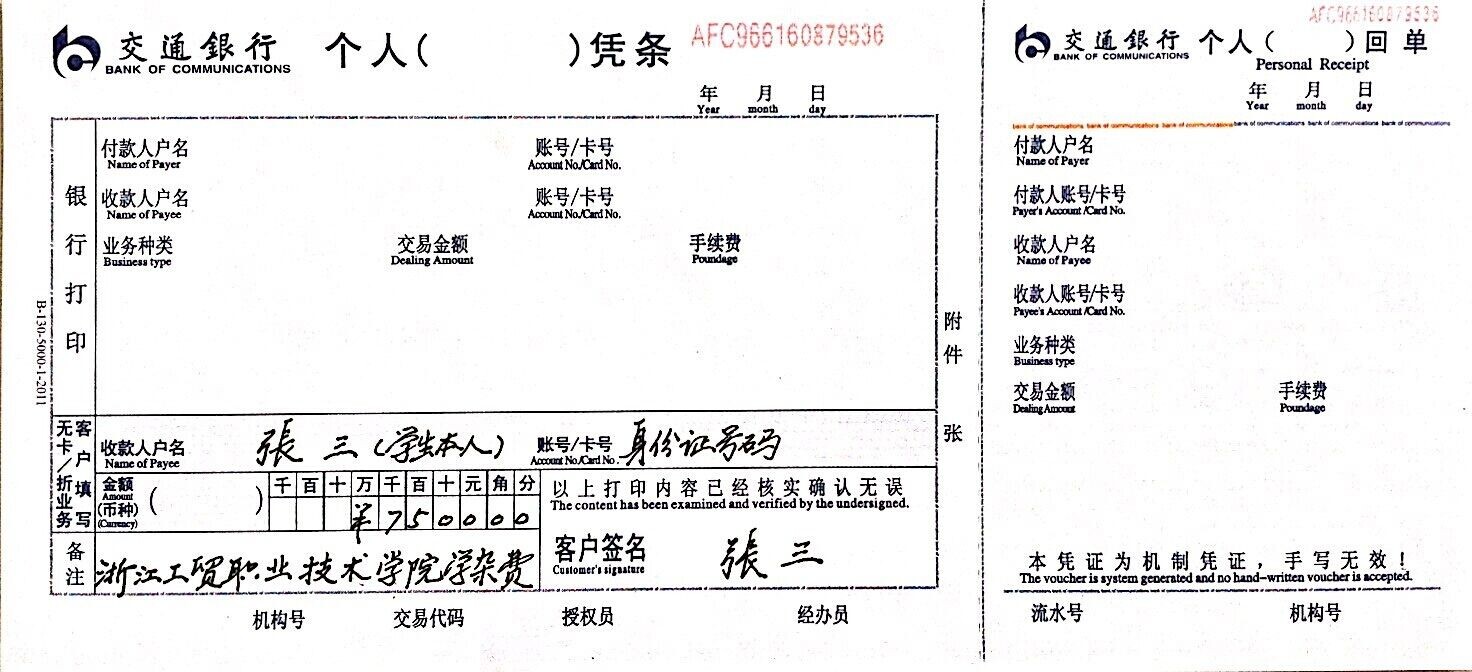 交通銀行 个人( )凭条 AFC966160879536
BANK OF COMMUNICATIONS
年 月 日
Year month day
银行打印
付款人户名 账号/卡号
Name of Payer Account No./Card No.
收款人户名 账号/卡号
Name of Payee Account No./Card No.
业务种类 交易金额 手续费
Business type Dealing Amount Poundage
B-130-5000-1-2011
附件 张
客户填写
无卡/折业务
收款人户名 張三(学生本人) 账号/卡号 身份证号码
Name of Payee Account No./Card No.
金额 ( ) 千 百 十 万 千 百 十 元 角 分
Amount
(币种) ¥ 7 5 0 0 0 0
(Currency)
以上打印内容已经核实确认无误
The content has been examined and verified by the undersigned.
备注 浙江工贸职业技术学院学杂费
客户签名 張三
Customer's signature
机构号 交易代码 授权员 经办员
AFC966160879536
交通銀行 个人( )回单
BANK OF COMMUNICATIONS Personal Receipt
年 月 日
Year month day
bank of communications bank of communications bank of communications bank of communications bank of communications bank of communications
付款人户名
Name of Payer
付款人账号/卡号
Payer's Account /Card No.
收款人户名
Name of Payee
收款人账号/卡号
Payee's Account /Card No.
业务种类
Business type
交易金额 手续费
Dealing Amount Poundage
本凭证为机制凭证，手写无效！
The voucher is system generated and no hand-written voucher is accepted.
流水号 机构号